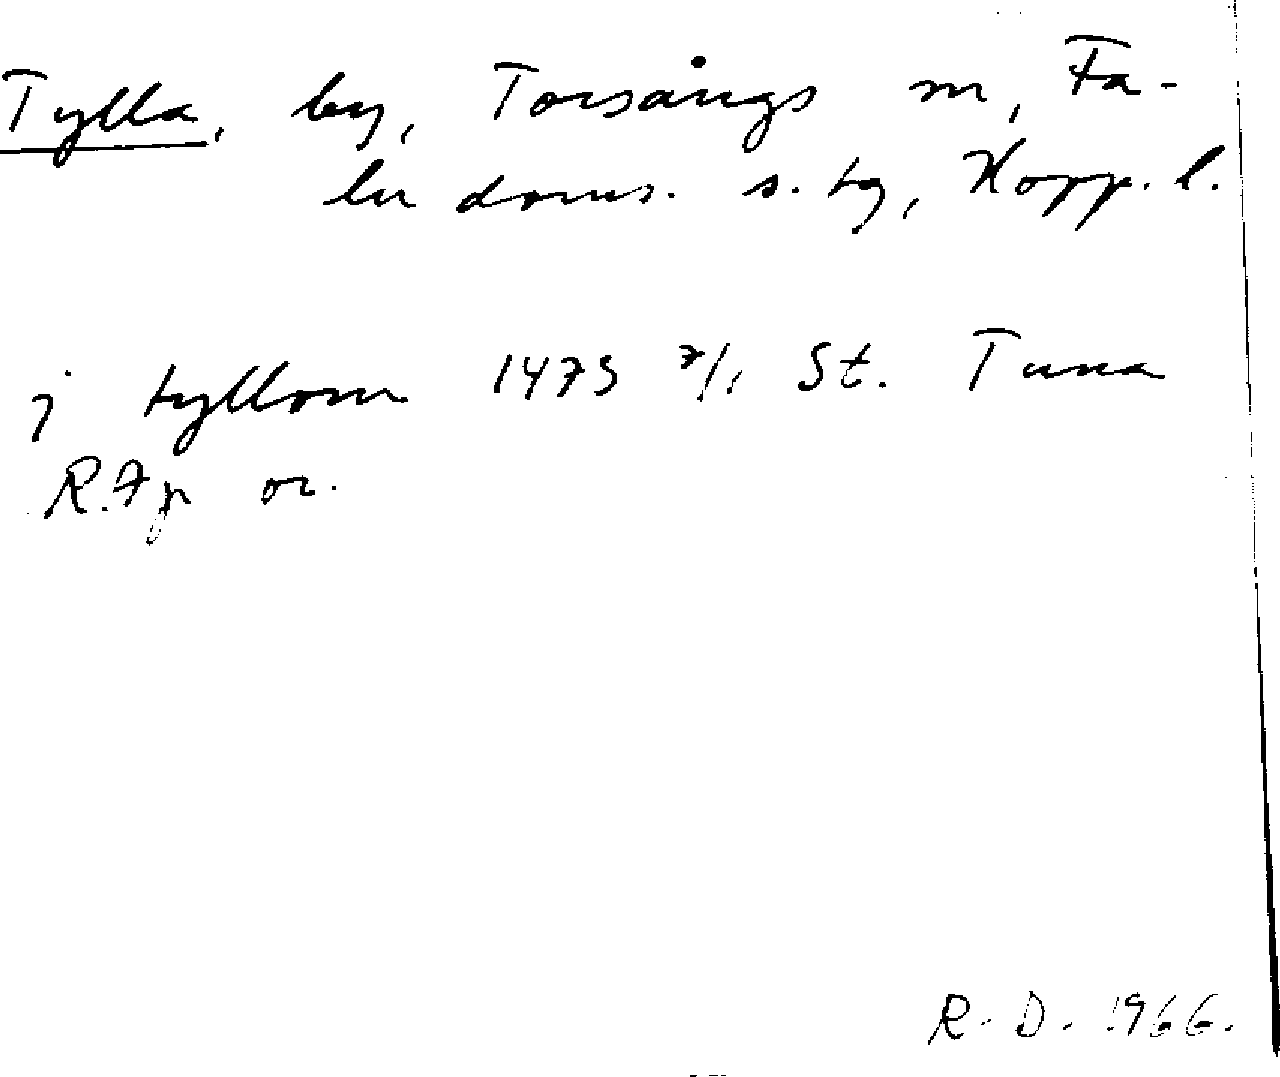 Tylla, by, Torsångs sn, Fa-
lu doms. s. tg, Kopp. l.
j tyllom 1475 7/1 St. Tuna
R.A p or.
R. D. 1966.